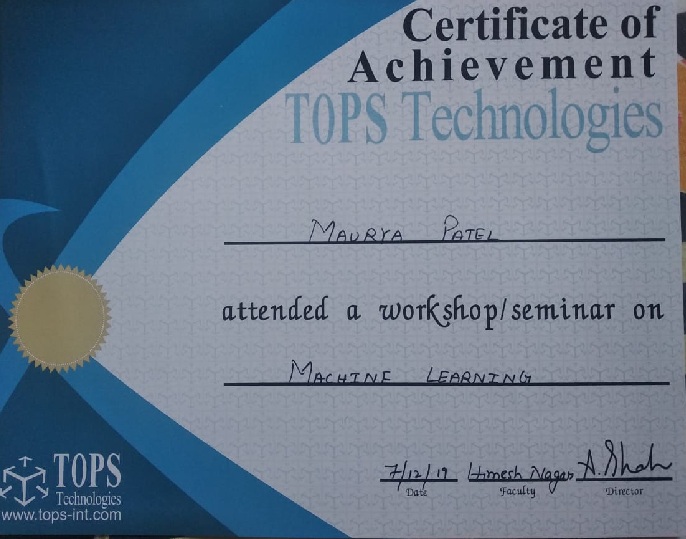 Certificate of
Achievement
TOPS Technologies
MAURYA PATEL
attended a workshop/seminar on
MACHINE LEARNING
7/12/19 Himesh Nagar A. Shah
Date Faculty Director
TOPS
Technologies
www.tops-int.com